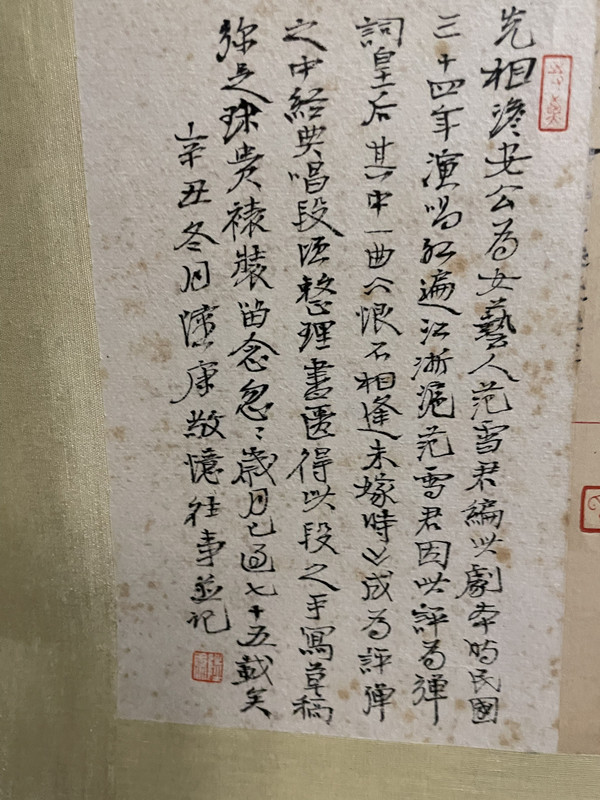 先祖澹安公為女藝人范雪君編此劇本時民國
三十四年演唱紅遍江浙滬范雪君因此評為彈
詞皇后其中一曲《恨不相逢未嫁時》成為評彈
之中經典唱段整理書匧得此段之手寫草稿
弥足珎貴裱裝留念忽〻歲月已過七十五載矣
辛丑冬月陸康敬憶往事並記